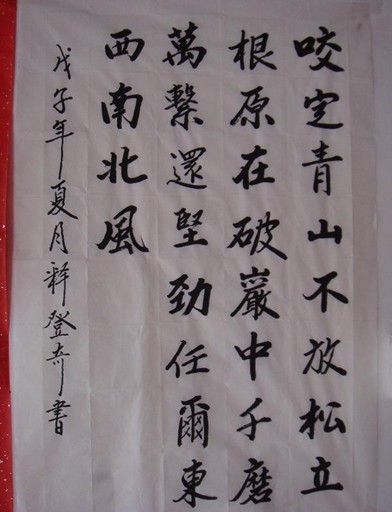 咬定青山不放松立
根原在破巖中千磨
萬繫還堅劲任爾東
西南北風
戊子年夏月释登奇書